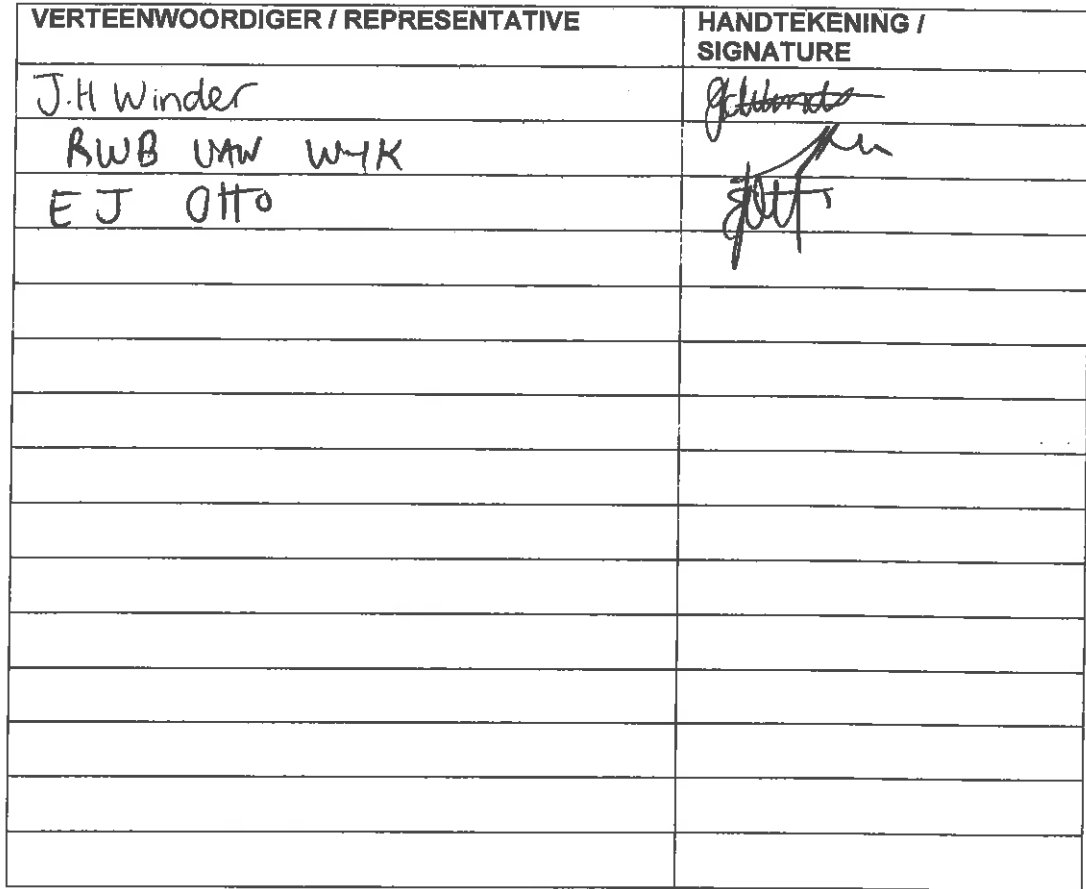 VERTEENWOORDIGER / REPRESENTATIVE
HANDTEKENING /
SIGNATURE
J.H Winder
RWB VAN WYK
E J Otto